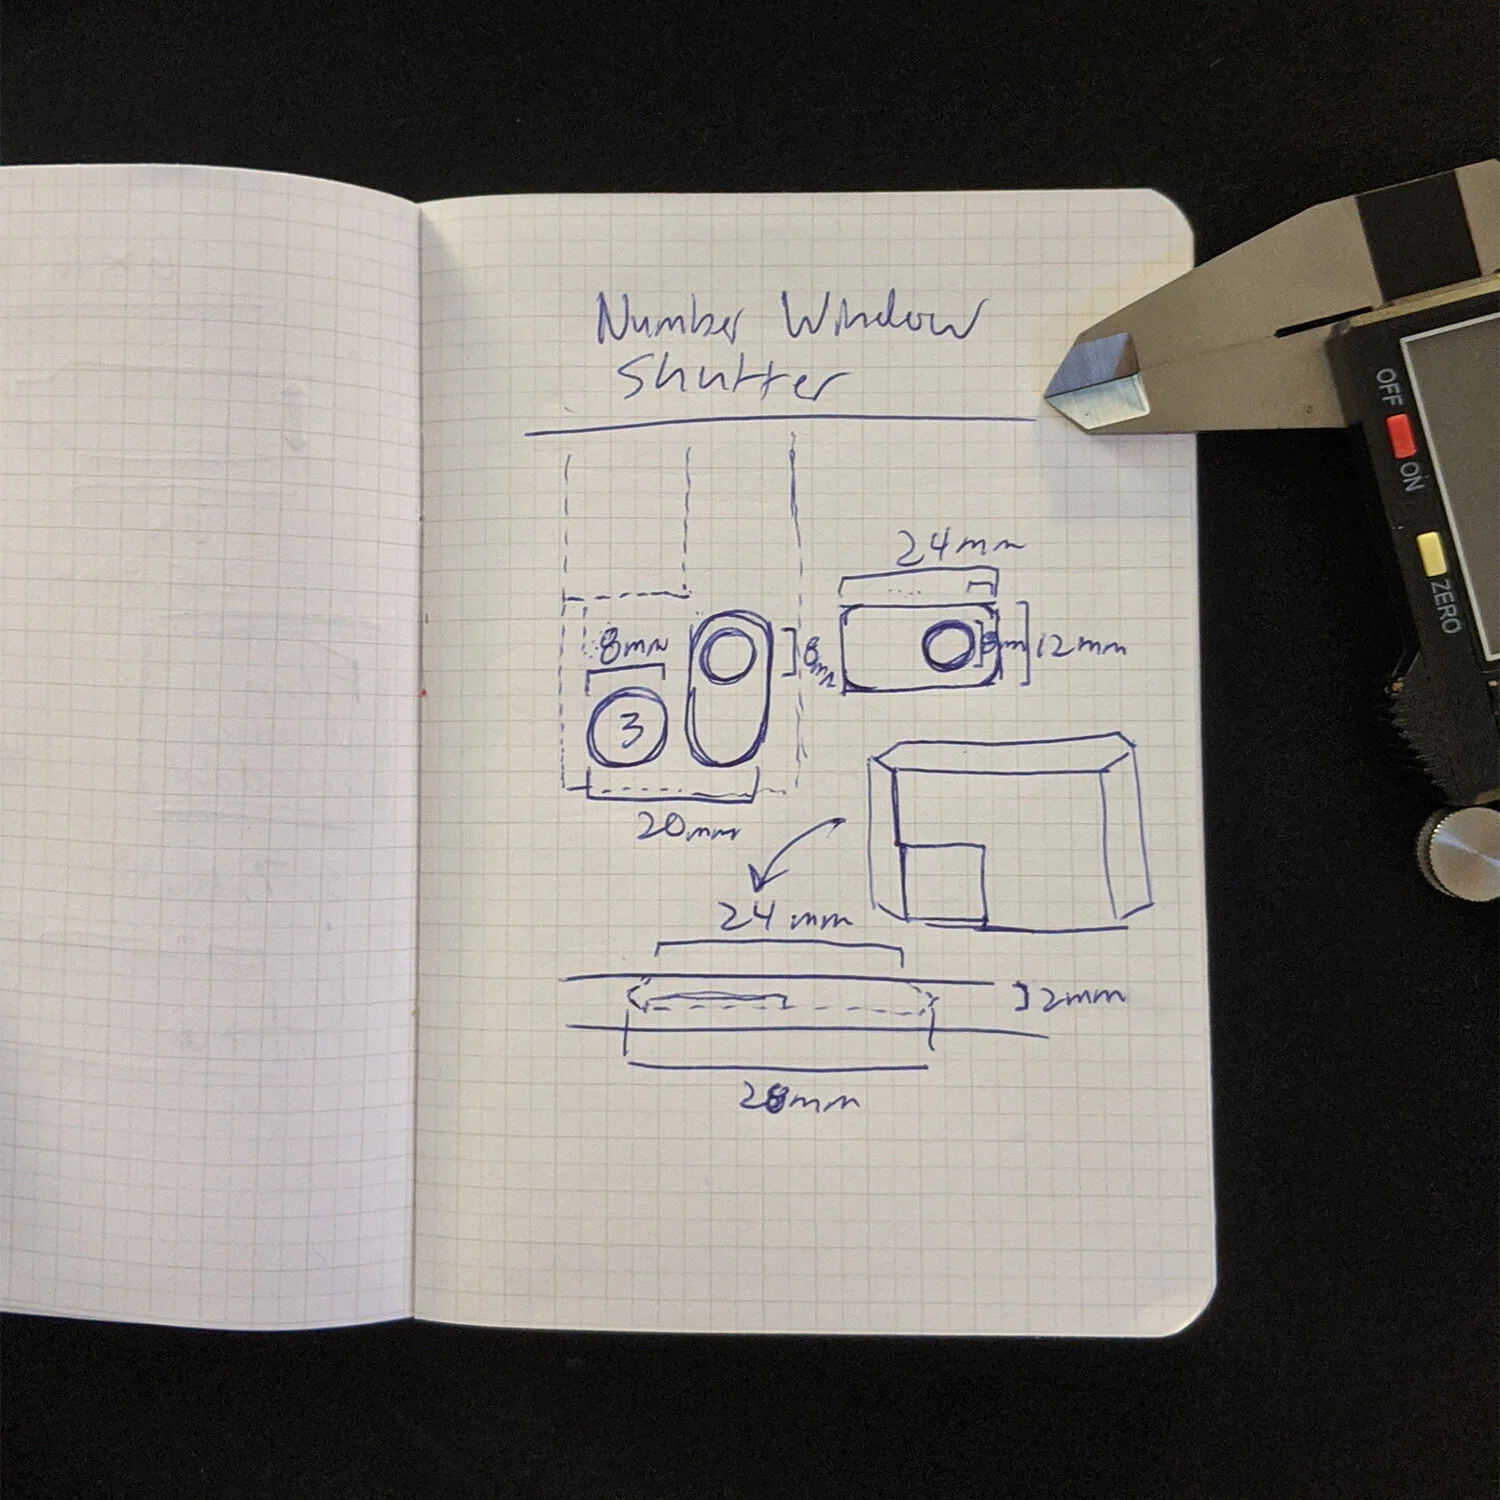 Number Window
Shutter
24mm
8mm
8mm
8m
12mm
3
20mm
24mm
2mm
28mm
OFF
ON
ZERO